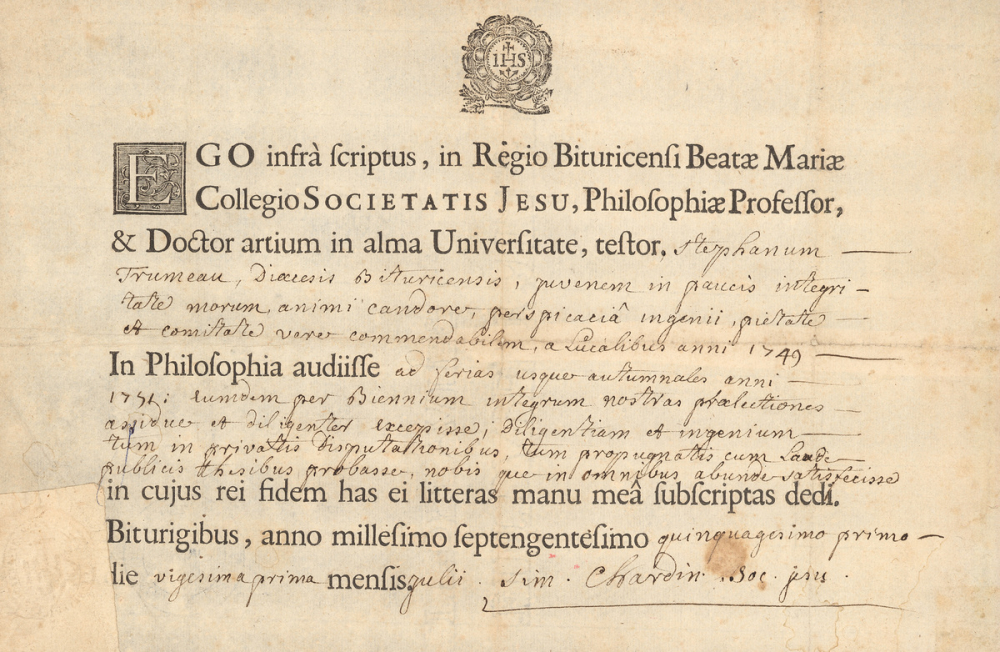 IHS
EGO infrà scriptus, in Regio Bituricensi Beatæ Mariæ
Collegio SOCIETATIS JESU, Philosophiæ Professor,
& Doctor artium in alma Universitate, testor. Stephanum
Trumeau, Diœcesis Bituricensis, juvenem in paucis integri-
tate morum, animi candore, perspicaciâ ingenii, pietate
et comitate vere commendabilem, a Lucalibus anni 1749
In Philosophia audiisse ad ferias usque autumnales anni
1751: Eumdem per Biennium integrum nostras prælectiones
assidue et diligenter excepisse; Diligentiam et ingenium
tum in privatis disputationibus, tum propugnatis cum Laude
publicis thesibus probasse, nobis que in omnibus abunde satisfecisse
in cujus rei fidem has ei litteras manu meâ subscriptas dedi.
Biturigibus, anno millesimo septengentesimo quinquagesimo primo
die vigesima prima mensis julii. Sim. Chardin. Soc. jesu.